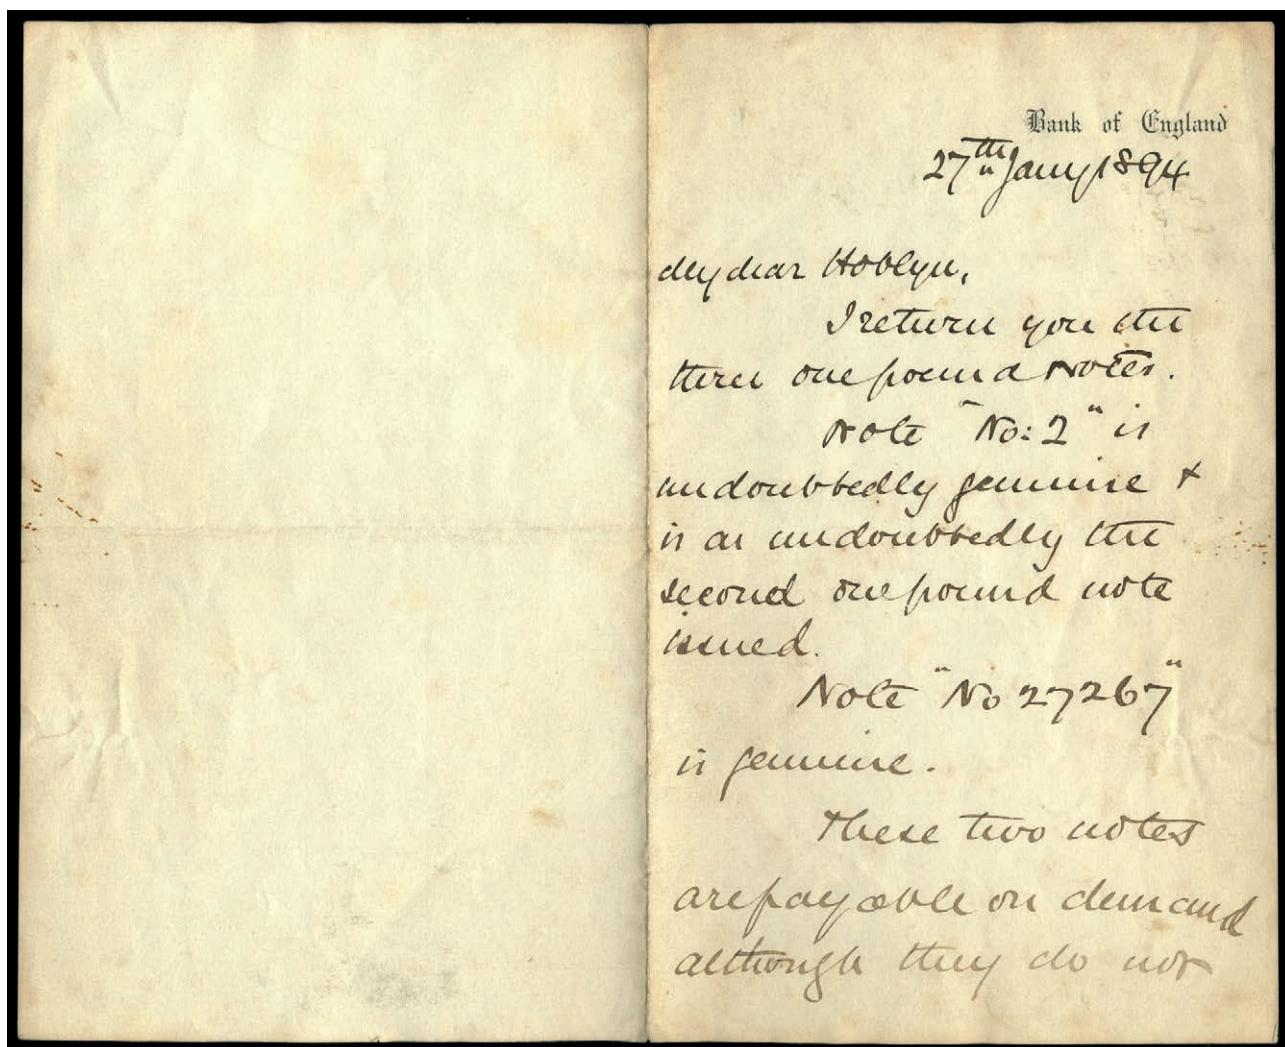 Bank of England
27th Jany 1894
My dear Hoblyn,
I return you the
three one pound Notes.
Note "No: 2" is
undoubtedly genuine &
is as undoubtedly the
second one pound note
issued.
Note "No 27267"
is genuine.
These two notes
are payable on demand
although they do not